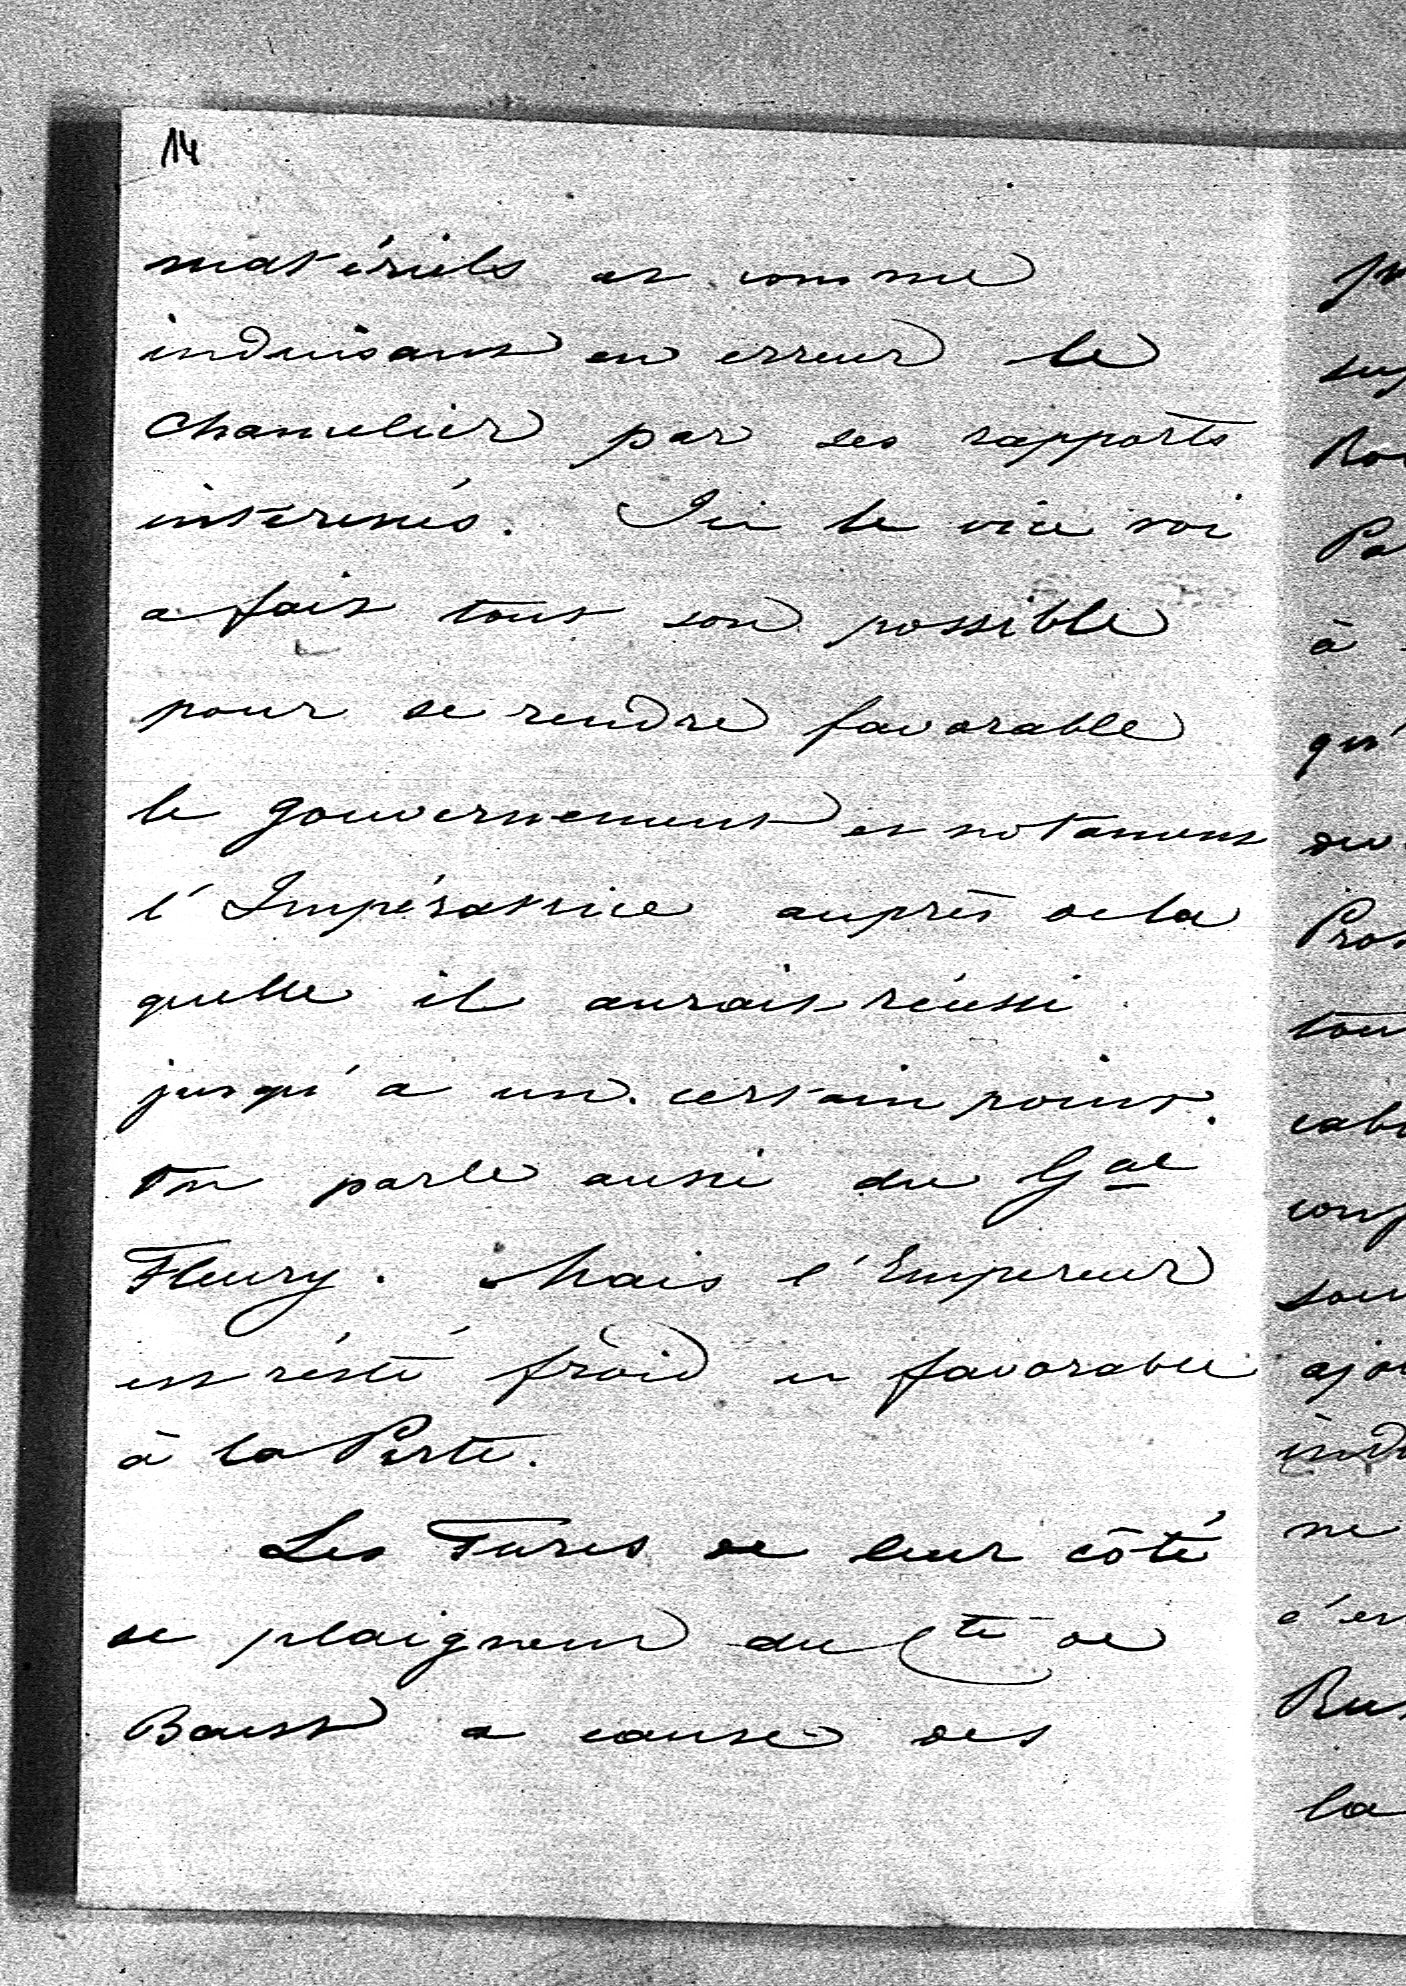 14
matériels et comme
induisant en erreur le
chancelier par ses rapports
intéressés. Ici le vice roi
a fait tout son possible
pour se rendre favorable
le gouvernement et notament
l'Impératrice auprès de la
quelle il aurait réussi
jusqu'a un certain point.
On parle aussi du Gal
Fleury. Mais l'Empereur
est résté froid et favorable
à la Porte.
Les Turcs de leur côté
se plaignent du Cte de
Beust a cause des